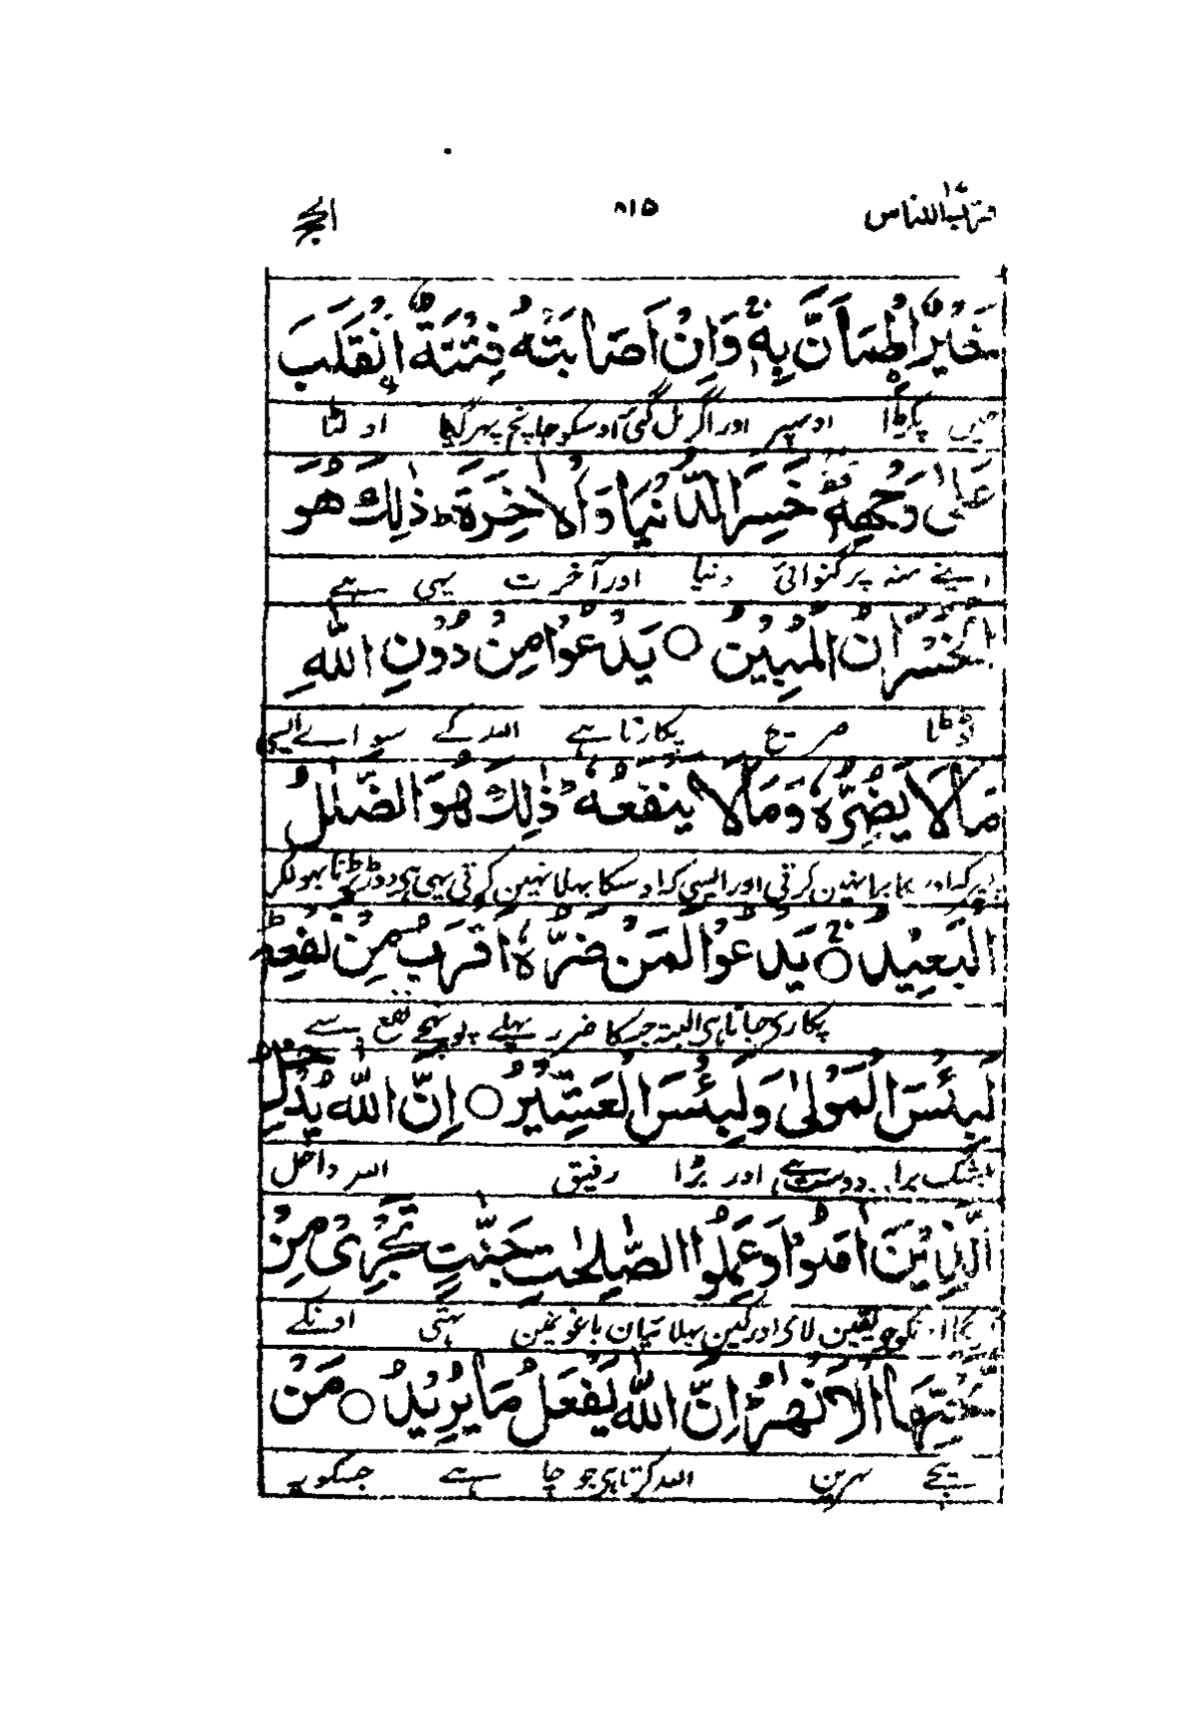 اقترب للناس ١٧
٨١٥
الحج
خَيْرُ ۨاطْمَاَنَّ بِهٖ وَاِنْ اَصَابَتْهُ فِتْنَةُ ۨانْقَلَبَ
پکڑا اوسپر اور اگر مل گئی اوسکو جانچ پہر گیا اولٹا
عَلٰى وَجْهِهٖ خَسِرَ الدُّنْيَا وَالْاٰخِرَةَ ط ذٰلِكَ هُوَ
اپنے منہ پر گنوائی دنیا اور آخرت یہی ہے
الْخُسْرَانُ الْمُبِيْنُ ○ يَدْعُوْا مِنْ دُوْنِ اللّٰهِ
ٹوٹا صریح پکارتا ہے اللہ کے سواے ایسی
مَا لَا يَضُرُّهٗ وَمَا لَا يَنْفَعُهٗ ط ذٰلِكَ هُوَ الضَّلٰلُ
برا نہین کرتی اور ایسی کہ اوسکا بہلا نہین کرتی یہی ہی دور پڑنا بہولکر
الْبَعِيْدُ ○ يَدْعُوْا لَمَنْ ضَرُّهٗ اَقْرَبُ مِنْ نَفْعِهٖ ط
پکاری جاتا ہی البتہ جسکا ضرر پہلے پہونچے نفع سے
لَبِئْسَ الْمَوْلٰى وَلَبِئْسَ الْعَشِيْرُ ○ اِنَّ اللّٰهَ يُدْخِلُ
بیشک برا دوست ہے اور برا رفیق اللہ داخل
الَّذِيْنَ اٰمَنُوْا وَعَمِلُوا الصّٰلِحٰتِ جَنّٰتٍ تَجْرِيْ مِنْ
کریگا اونکو جو یقین لای اور کین بہلائیان باغونمین بہتی اونکے
تَحْتِهَا الْاَنْهٰرُ ط اِنَّ اللّٰهَ يَفْعَلُ مَا يُرِيْدُ ○ مَنْ
نیچے نہرین اللہ کرتا ہی جو چاہے جسکو یہ